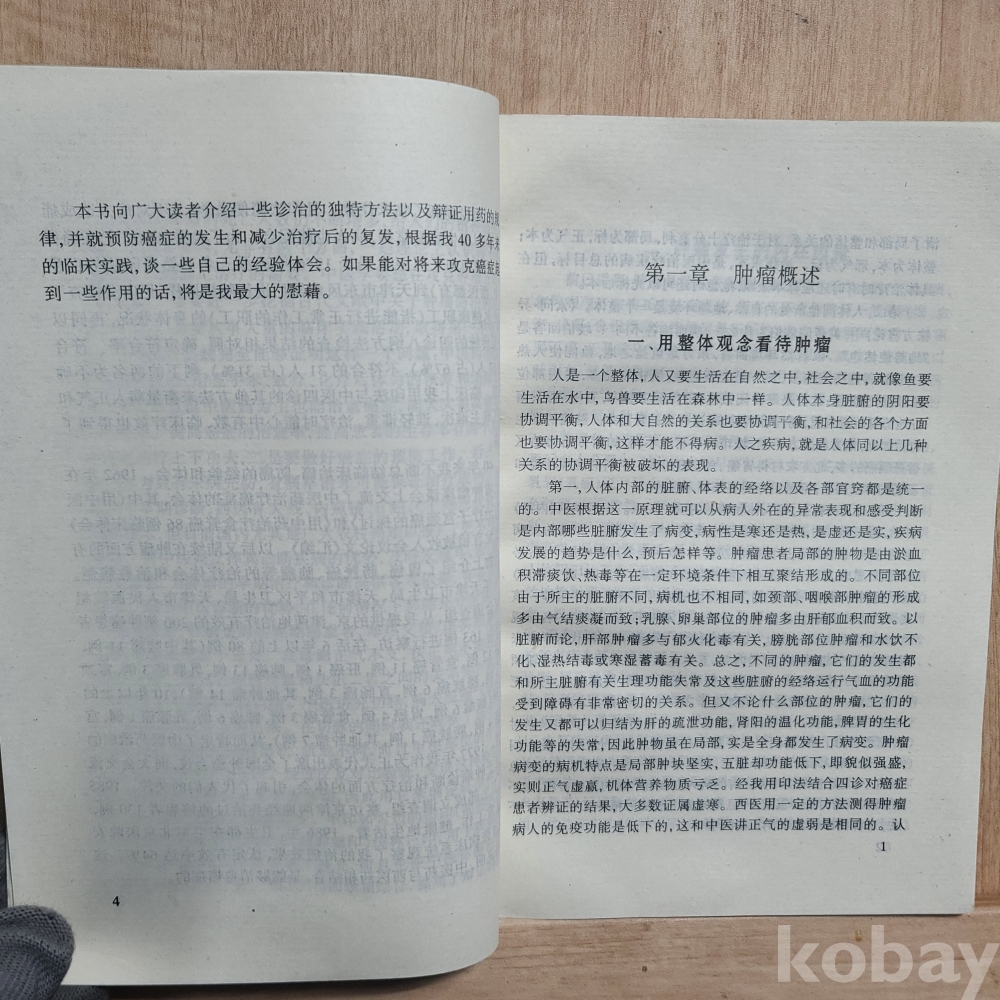 本书向广大读者介绍一些诊治的独特方法以及辩证用药的规
律,并就预防癌症的发生和减少治疗后的复发,根据我40多年来
的临床实践,谈一些自己的经验体会。如果能对将来攻克癌症起
到一些作用的话,将是我最大的慰藉。
4
第一章 肿瘤概述
一、用整体观念看待肿瘤
人是一个整体,人又要生活在自然之中,社会之中,就像鱼要
生活在水中,鸟兽要生活在森林中一样。人体本身脏腑的阴阳要
协调平衡,人体和大自然的关系也要协调平衡,和社会的各个方面
也要协调平衡,这样才能不得病。人之疾病,就是人体同以上几种
关系的协调平衡被破坏的表现。
第一,人体内部的脏腑、体表的经络以及各部官窍都是统一
的。中医根据这一原理就可以从病人外在的异常表现和感受判断
是内部哪些脏腑发生了病变,病性是寒还是热,是虚还是实,疾病
发展的趋势是什么,预后怎样等。肿瘤患者局部的肿物是由淤血
积滞痰饮、热毒等在一定环境条件下相互聚结形成的。不同部位
由于所主的脏腑不同,病机也不相同,如颈部、咽喉部肿瘤的形成
多由气结痰凝而致;乳腺、卵巢部位的肿瘤多由肝郁血积而致。以
脏腑而论,肝部肿瘤多与郁火化毒有关,膀胱部位肿瘤和水饮不
化、湿热结毒或寒湿蓄毒有关。总之,不同的肿瘤,它们的发生都
和所主脏腑有关生理功能失常及这些脏腑的经络运行气血的功能
受到障碍有非常密切的关系。但又不论什么部位的肿瘤,它们的
发生又都可以归结为肝的疏泄功能,肾阳的温化功能,脾胃的生化
功能等的失常,因此肿物虽在局部,实是全身都发生了病变。肿瘤
病变的病机特点是局部肿块坚实,五脏却功能低下,即貌似强盛,
实则正气虚羸,机体营养物质亏乏。经我用印法结合四诊对癌症
患者辨证的结果,大多数证属虚寒。西医用一定的方法测得肿瘤
病人的免疫功能是低下的,这和中医讲正气的虚弱是相同的。认
1
kobay